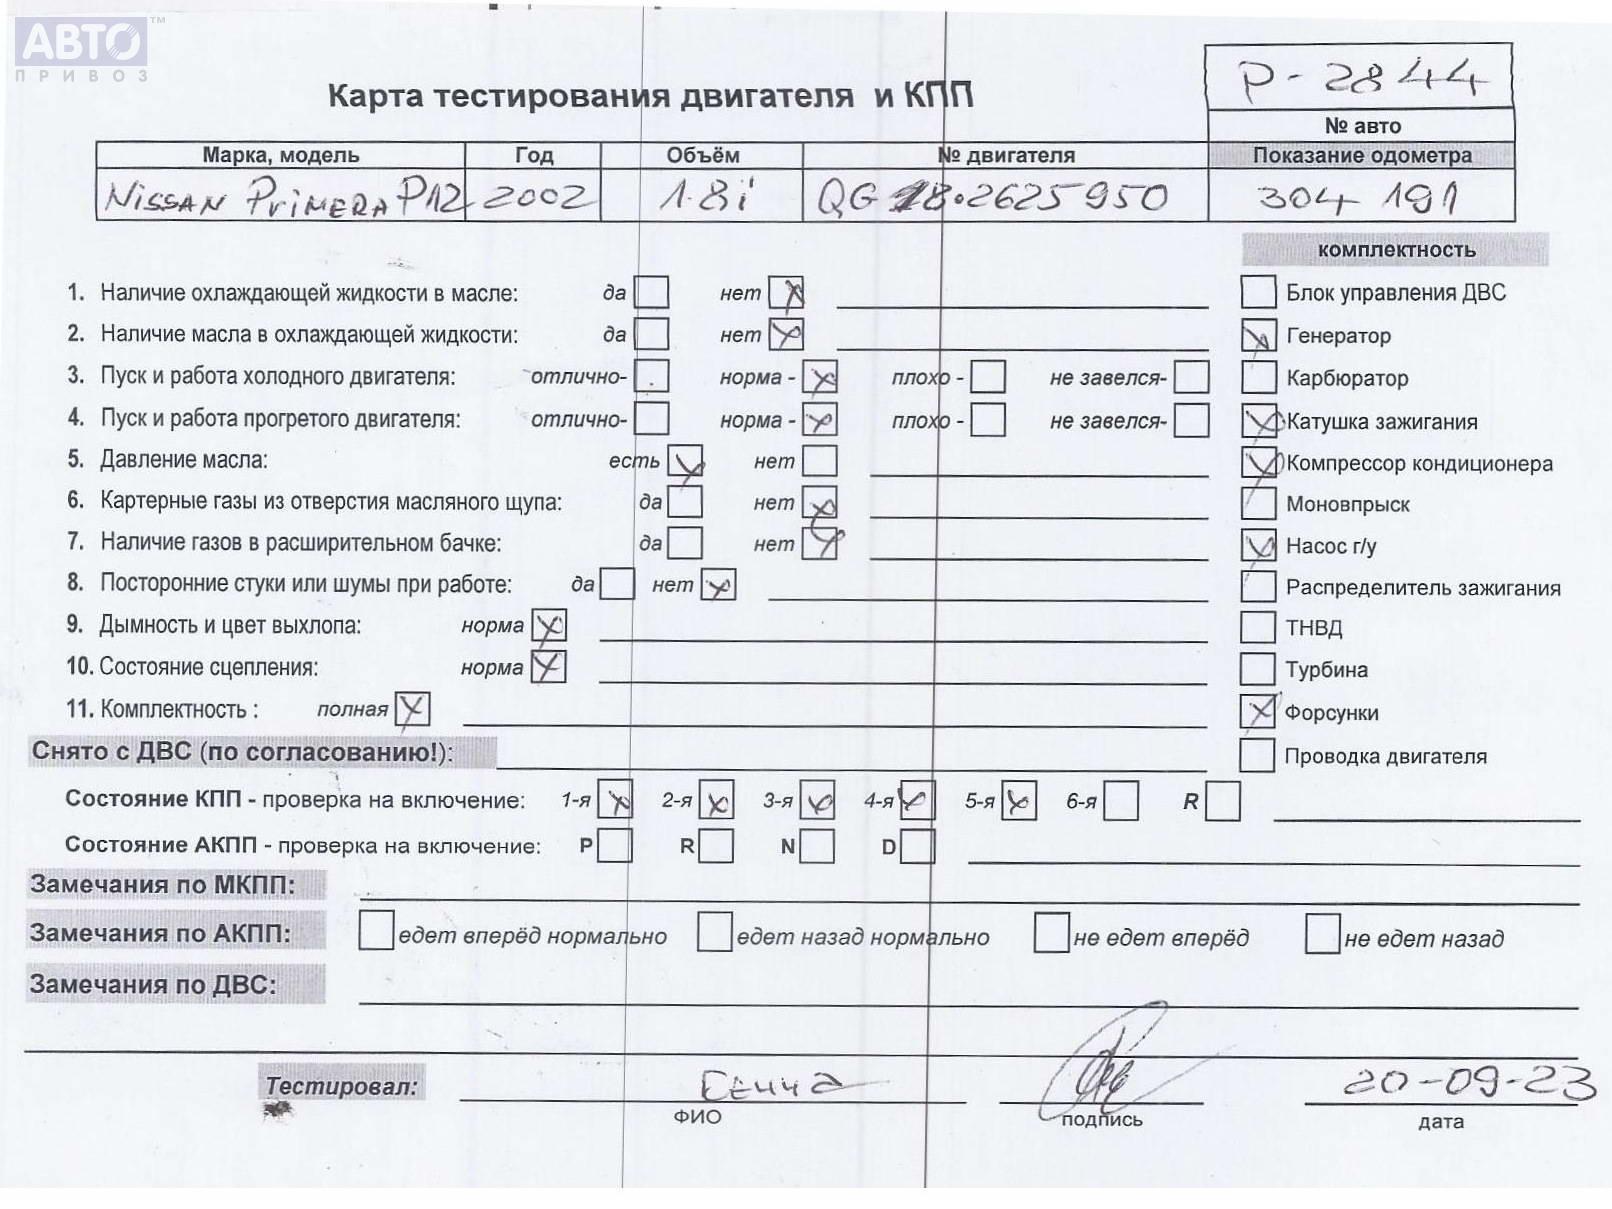 АВТО™
ПРИВОЗ
Р-2844
Карта тестирования двигателя и КПП
№ авто
Марка, модель Год Объём № двигателя Показание одометра
Nissan Primera P12 2002 1.8i QG18.2625950 304 191
комплектность
1. Наличие охлаждающей жидкости в масле: да нет Блок управления ДВС
2. Наличие масла в охлаждающей жидкости: да нет Генератор
3. Пуск и работа холодного двигателя: отлично- норма - плохо - не завелся- Карбюратор
4. Пуск и работа прогретого двигателя: отлично- норма - плохо - не завелся- Катушка зажигания
5. Давление масла: есть нет Компрессор кондиционера
6. Картерные газы из отверстия масляного щупа: да нет Моновпрыск
7. Наличие газов в расширительном бачке: да нет Насос г/у
8. Посторонние стуки или шумы при работе: да нет Распределитель зажигания
9. Дымность и цвет выхлопа: норма ТНВД
10. Состояние сцепления: норма Турбина
11. Комплектность : полная Форсунки
Снято с ДВС (по согласованию!): Проводка двигателя
Состояние КПП - проверка на включение: 1-я 2-я 3-я 4-я 5-я 6-я R
Состояние АКПП - проверка на включение: P R N D
Замечания по МКПП:
Замечания по АКПП: едет вперёд нормально едет назад нормально не едет вперёд не едет назад
Замечания по ДВС:
Тестировал: 20-09-23
ФИО подпись дата